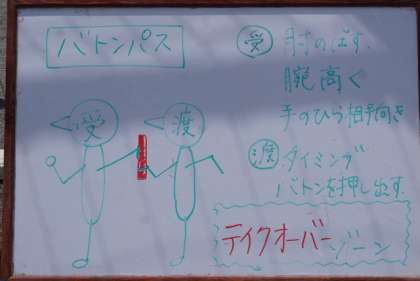 バトンパス
受 肘のばす、
腕高く
手のひら相手向き
渡 タイミング
バトンを押し出す
受
渡
テイクオーバーゾーン